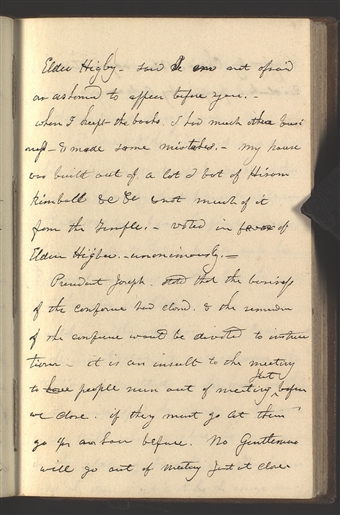 Elder Higby - said I am not afraid
or ashamed to appear before you. -
when I kept the books I had much other busi
ness - & made some mistakes. - my house
was built out of a lot I bot of Hiram
Kimball &c &c & not much of it
from the Temple. - voted in favor of
Elder Higbee. - unanimously. -
President Joseph. stated that the business
of the conference had closed. & the remainder
of the conference would be devoted to instruc
tion - it is an insult to the meeting
to have people run out of meeting Just before
we close. if they must go let them
go ½ an hour before. No Gentlemen
will go out of meeting Just at close